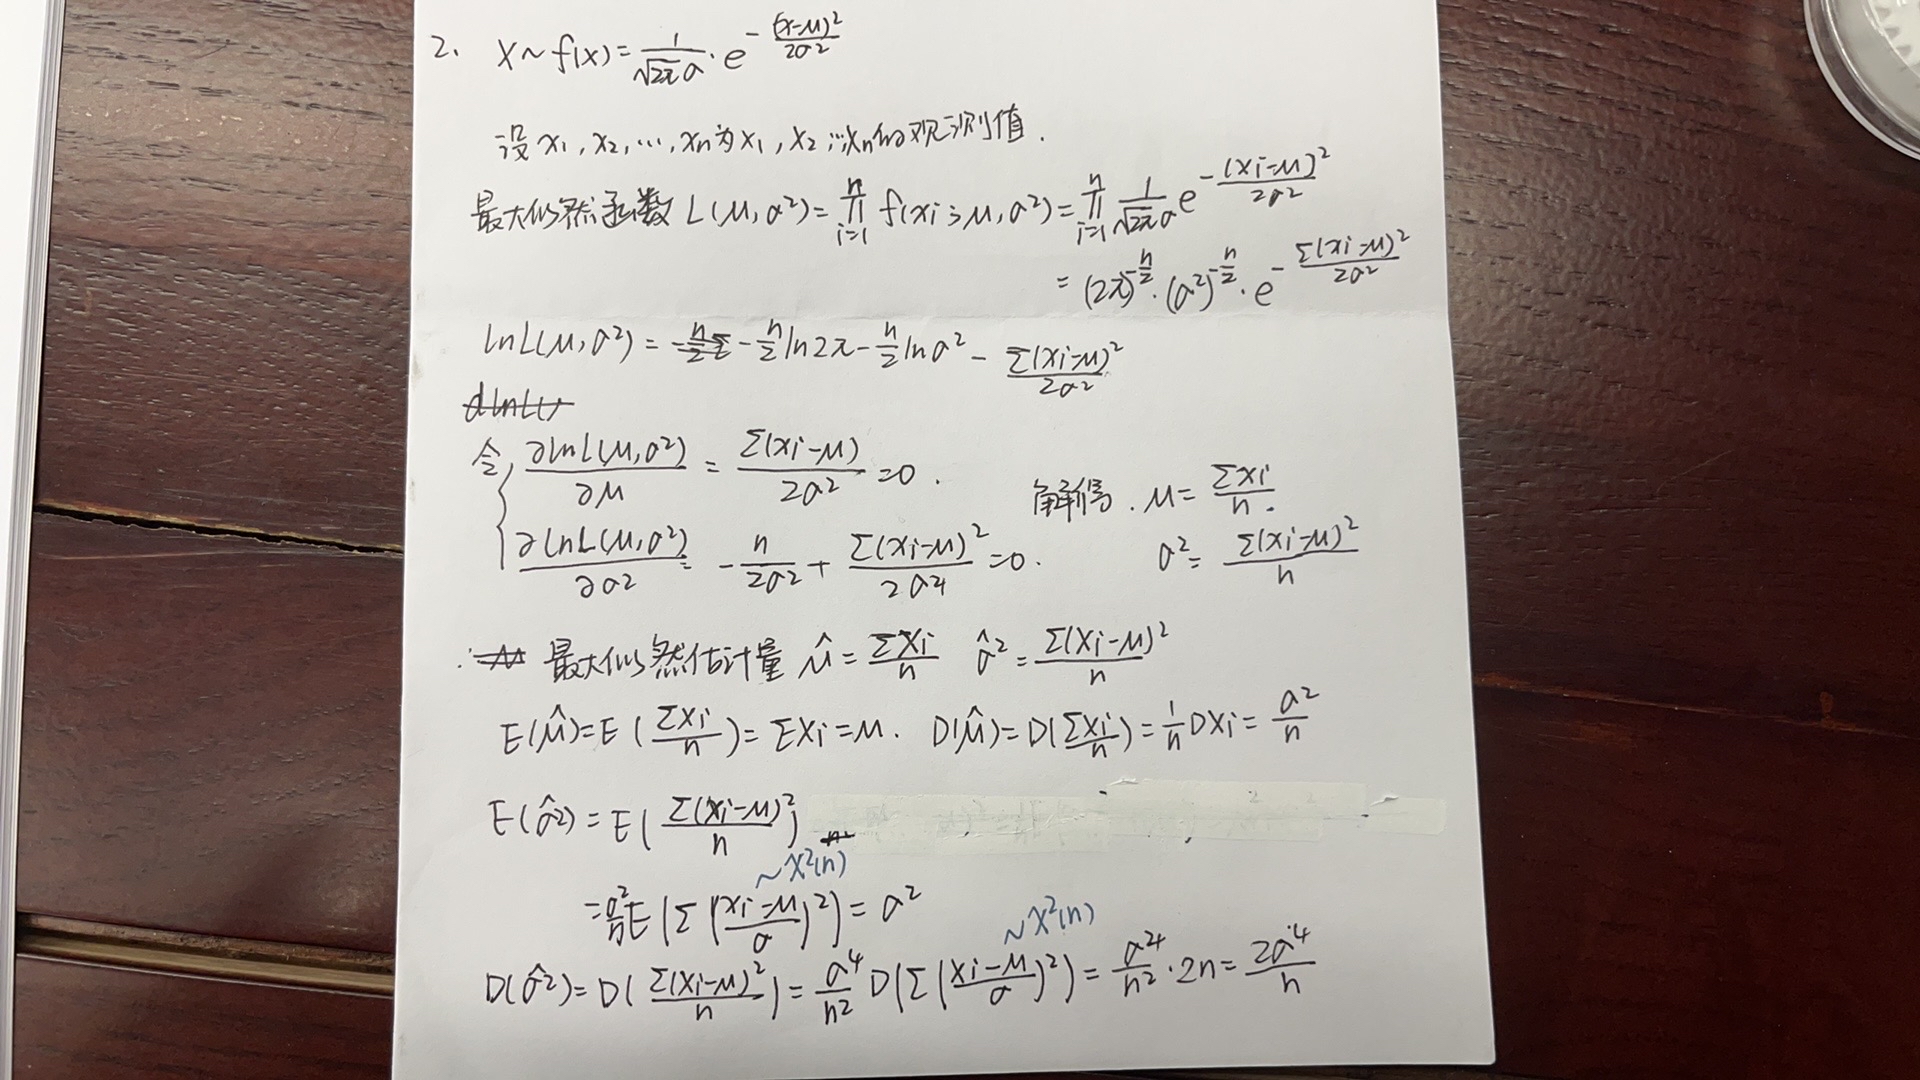 2. X~f(x)=1/(√2π σ)·e^-(x-μ)²/2σ²
设 x₁, x₂, …, xn为X₁, X₂…Xn的观测值.
最大似然函数 L(μ,σ²)=∏_{i=1}^{n} f(xi;μ,σ²)=∏_{i=1}^{n} 1/(√2π σ) e^-(xi-μ)²/2σ²
=(2π)^-n/2·(σ²)^-n/2·e^-Σ(xi-μ)²/2σ²
lnL(μ,σ²)=-n/2 ln2π-n/2 lnσ²-Σ(xi-μ)²/2σ²
dlnL(
令{ ∂lnL(μ,σ²)/∂μ=Σ(xi-μ)/2σ²=0. 解得. μ=Σxi/n.
∂lnL(μ,σ²)/∂σ²=-n/2σ²+Σ(xi-μ)²/2σ⁴=0. σ²=Σ(xi-μ)²/n
最大似然估计量 μ̂=ΣXi/n σ̂²=Σ(Xi-μ)²/n
E(μ̂)=E(ΣXi/n)=EXi=μ. D(μ̂)=D(ΣXi/n)=1/n DXi=σ²/n
E(σ̂²)=E(Σ(Xi-μ)²/n)
~χ²(n)
=σ²/n E(Σ(Xi-μ/σ)²)=σ²
~χ²(n)
D(σ̂²)=D(Σ(Xi-μ)²/n)=σ⁴/n² D(Σ(Xi-μ/σ)²)=σ⁴/n²·2n=2σ⁴/n